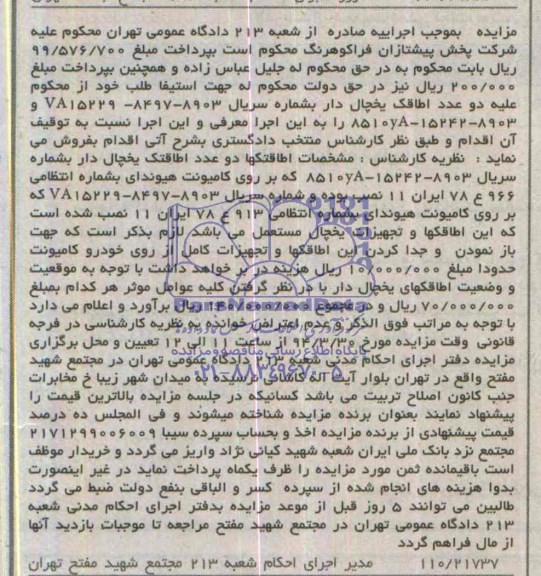 مزایده بموجب اجراییه صادره از شعبه ۲۱۳ دادگاه عمومی تهران محکوم علیه
شرکت پخش پیشتازان فراکوهرنگ محکوم است بپرداخت مبلغ ۹۹/۵۷۶/۷۰۰
ریال بابت محکوم به در حق محکوم له جلیل عباس زاده و همچنین بپرداخت مبلغ
۲۰۰/۰۰۰ ریال نیز در حق دولت محکوم له جهت استیفا طلب خود از محکوم
علیه دو عدد اطاقک یخچال دار بشماره سریال ۸۹۰۳-۸۴۹۷- VA۱۵۲۲۹ و
۸۹۰۳-۱۵۲۴۲-۸۵۱۰yA را به این اجرا معرفی و این اجرا نسبت به توقیف
آن اقدام و طبق نظر کارشناس منتخب دادگستری بشرح آتی اقدام بفروش می
نماید : نظریه کارشناس : مشخصات اطاقتکها دو عدد اطاقتک یخچال دار بشماره
سریال ۸۹۰۳-۱۵۲۴۲-۸۵۱۰yA که بر روی کامیونت هیوندای بشماره انتظامی
۹۶۶ ع ۷۸ ایران ۱۱ نصب بوده و شماره سریال ۸۹۰۳-۸۴۹۷-VA۱۵۲۲۹ که
بر روی کامیونت هیوندای بشماره انتظامی ۹۱۳ ع ۷۸ ایران ۱۱ نصب شده است
که این اطاقکها و تجهیزات یخچال مستعمل می باشد لازم بذکر است که جهت
باز نمودن و جدا کردن این اطاقکها و تجهیزات کامل از روی خودرو کامیونت
حدودا مبلغ ۱۰/۰۰۰/۰۰۰ ریال هزینه در بر خواهد داشت با توجه به موقعیت
و وضعیت اطاقکهای یخچال دار با در نظر گرفتن کلیه عوامل موثر هر کدام بمبلغ
۷۰/۰۰۰/۰۰۰ ریال و در مجموع ۱۴۰/۰۰۰/۰۰۰ ریال برآورد و اعلام می دارد
با توجه به مراتب فوق الذکر و عدم اعتراض خوانده به نظریه کارشناسی در فرجه
قانونی وقت مزایده مورخ ۹۴/۳/۳۰ از ساعت ۱۱ الی ۱۲ تعیین و محل برگزاری
مزایده دفتر اجرای احکام مدنی شعبه ۲۱۳ دادگاه عمومی تهران در مجتمع شهید
مفتح واقع در تهران بلوار آیت اله کاشانی نرسیده به میدان شهر زیبا خ مخابرات
جنب کانون اصلاح تربیت می باشد کسانیکه در جلسه مزایده بالاترین قیمت را
پیشنهاد نمایند بعنوان برنده مزایده شناخته میشوند و فی المجلس ده درصد
قیمت پیشنهادی از برنده مزایده اخذ و بحساب سپرده سیبا ۲۱۷۱۲۹۹۰۰۶۰۰۹
مجتمع نزد بانک ملی ایران شعبه شهید کیانی نژاد واریز می گردد و خریدار موظف
است باقیمانده ثمن مورد مزایده را ظرف یکماه پرداخت نماید در غیر اینصورت
بدوا هزینه های انجام شده از سپرده کسر و الباقی بنفع دولت ضبط می گردد
طالبین می توانند ۵ روز قبل از موعد مزایده بدفتر اجرای احکام مدنی شعبه
۲۱۳ دادگاه عمومی تهران در مجتمع شهید مفتح مراجعه تا موجبات بازدید آنها
از مال فراهم گردد
۱۱۰/۲۱۷۳۷ مدیر اجرای احکام شعبه ۲۱۳ مجتمع شهید مفتح تهران
پایگاه اطلاع رسانی مناقصه و مزایده
۰۲۱-۸۸۳۴۹۶۷۰-۵